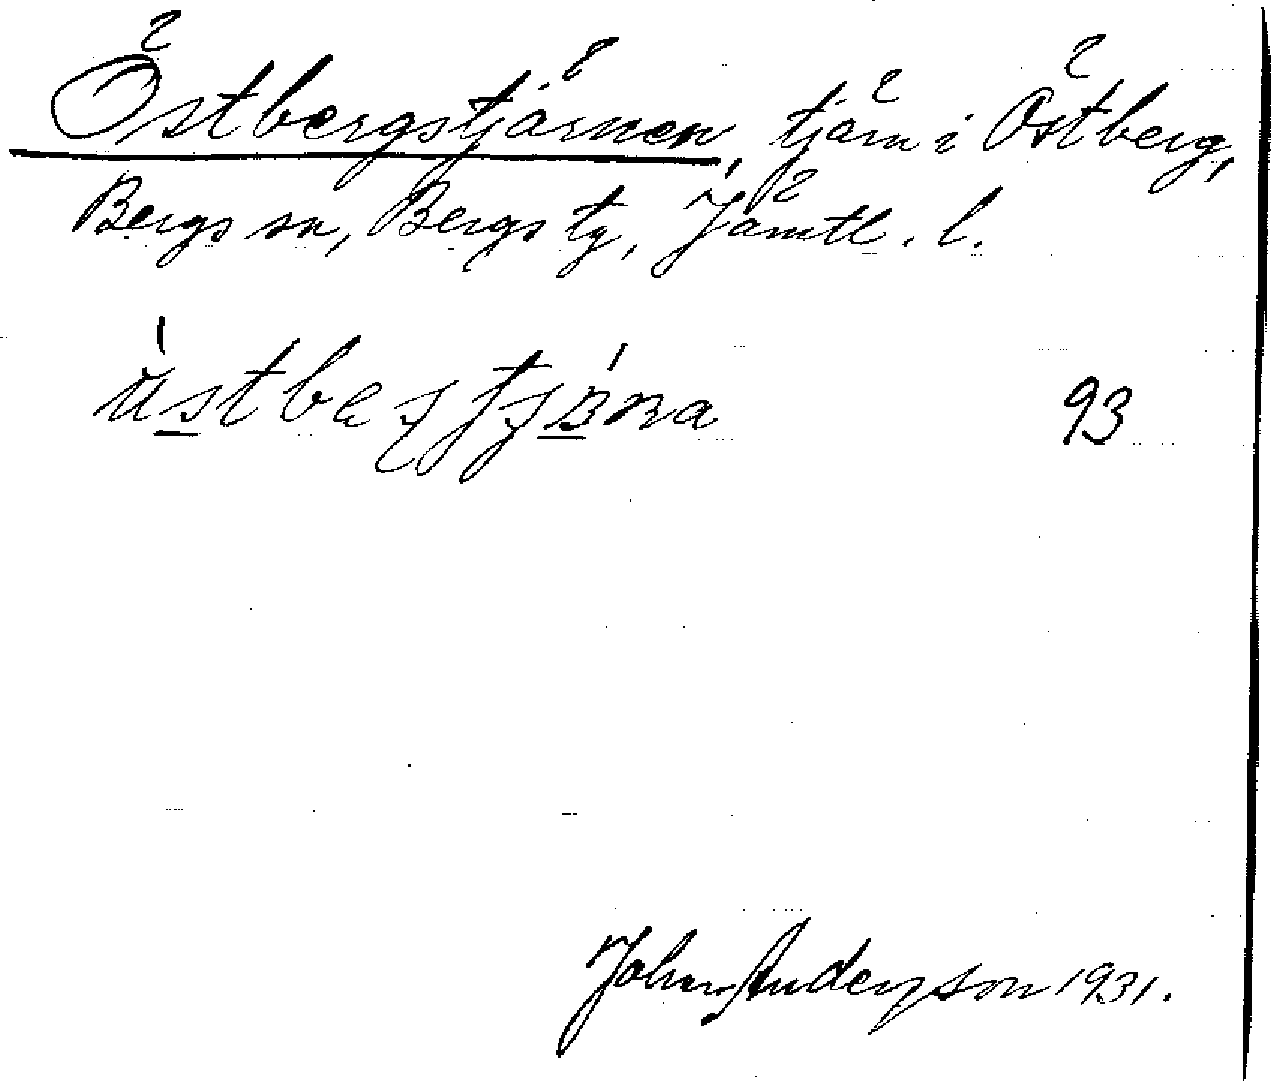 Östbergstjärnen, tjärn i Östberg,
Bergs sn, Bergs tg, Jämtl. l.
93
Johan Anderson 1931.